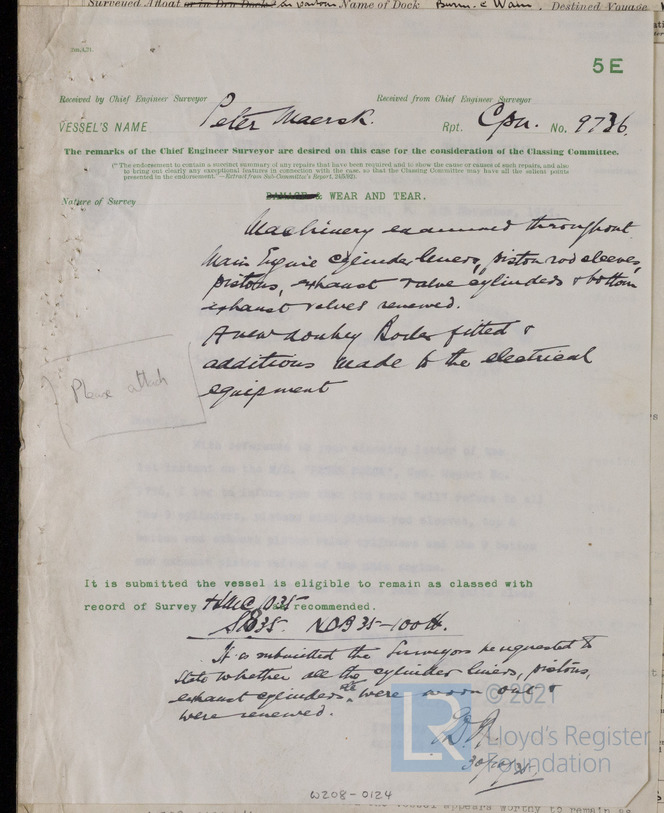 Surveyed Afloat or in Dry Dock Name of Dock Burm. & Wain. Destined Voyage
5E
Received by Chief Engineer Surveyor Received from Chief Engineer Surveyor
VESSEL'S NAME Peter Maersk. Rpt. Cpn. No. 9736.
The remarks of the Chief Engineer Surveyor are desired on this case for the consideration of the Classing Committee.
(* The endorsement to contain a succinct summary of any repairs that have been required and to show the cause or causes of such repairs, and also
to bring out clearly any exceptional features in connection with the case, so that the Classing Committee may have all the salient points
presented in the endorsement."—Extract from Sub-Committee's Report, 24/5/92).
Nature of Survey DAMAGE & WEAR AND TEAR.
Machinery examined throughout
Main Engine cylinder liners, piston rod sleeves,
pistons, exhaust valve cylinders & bottom
exhaust valves renewed.
A new donkey Boiler fitted &
additions made to the electrical
equipment
Please attach
It is submitted the vessel is eligible to remain as classed with
record of Survey +LMC 10.35 as recommended.
SB35. NDB35-100 lb.
It is submitted the Surveyors be requested to
state whether all the cylinder liners, pistons,
exhaust cylinders etc were worn out &
were renewed.
30/10/35
© 2021
LR Lloyd's Register
Foundation
W208-0124
the vessel appears worthy to remain as